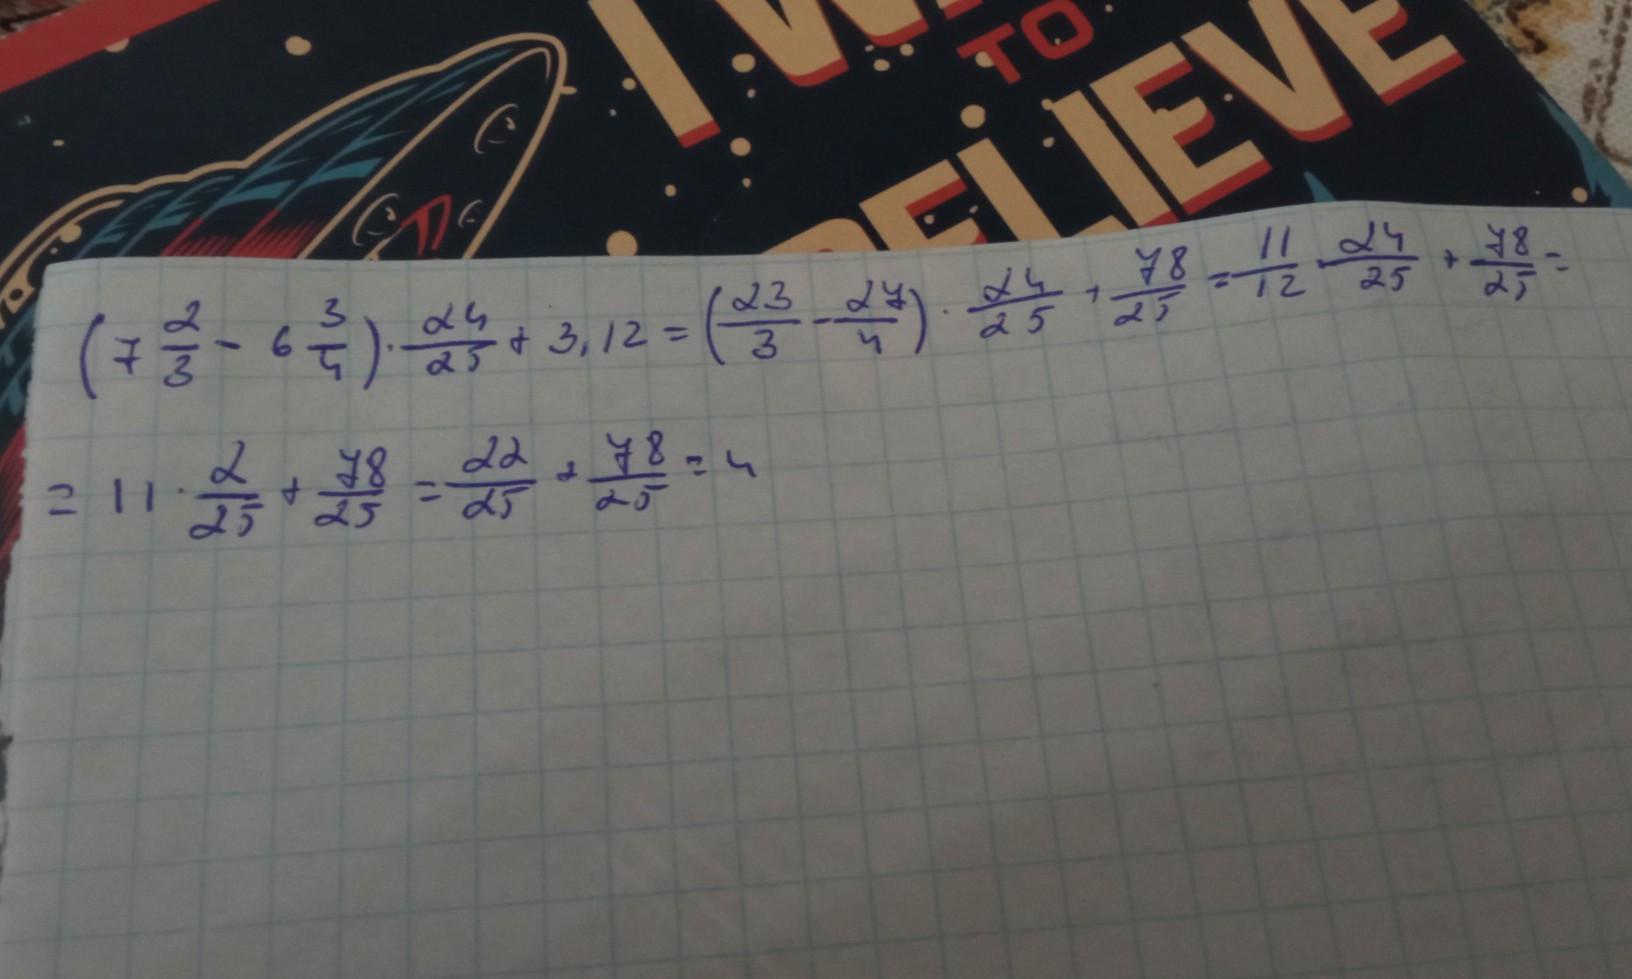 I WA
TO
BELIEVE
(7 2/3 - 6 3/4) · 24/25 + 3,12 = (23/3 - 27/4) · 24/25 + 78/25 = 11/12 · 24/25 + 78/25 =
= 11 · 2/25 + 78/25 = 22/25 + 78/25 = 4